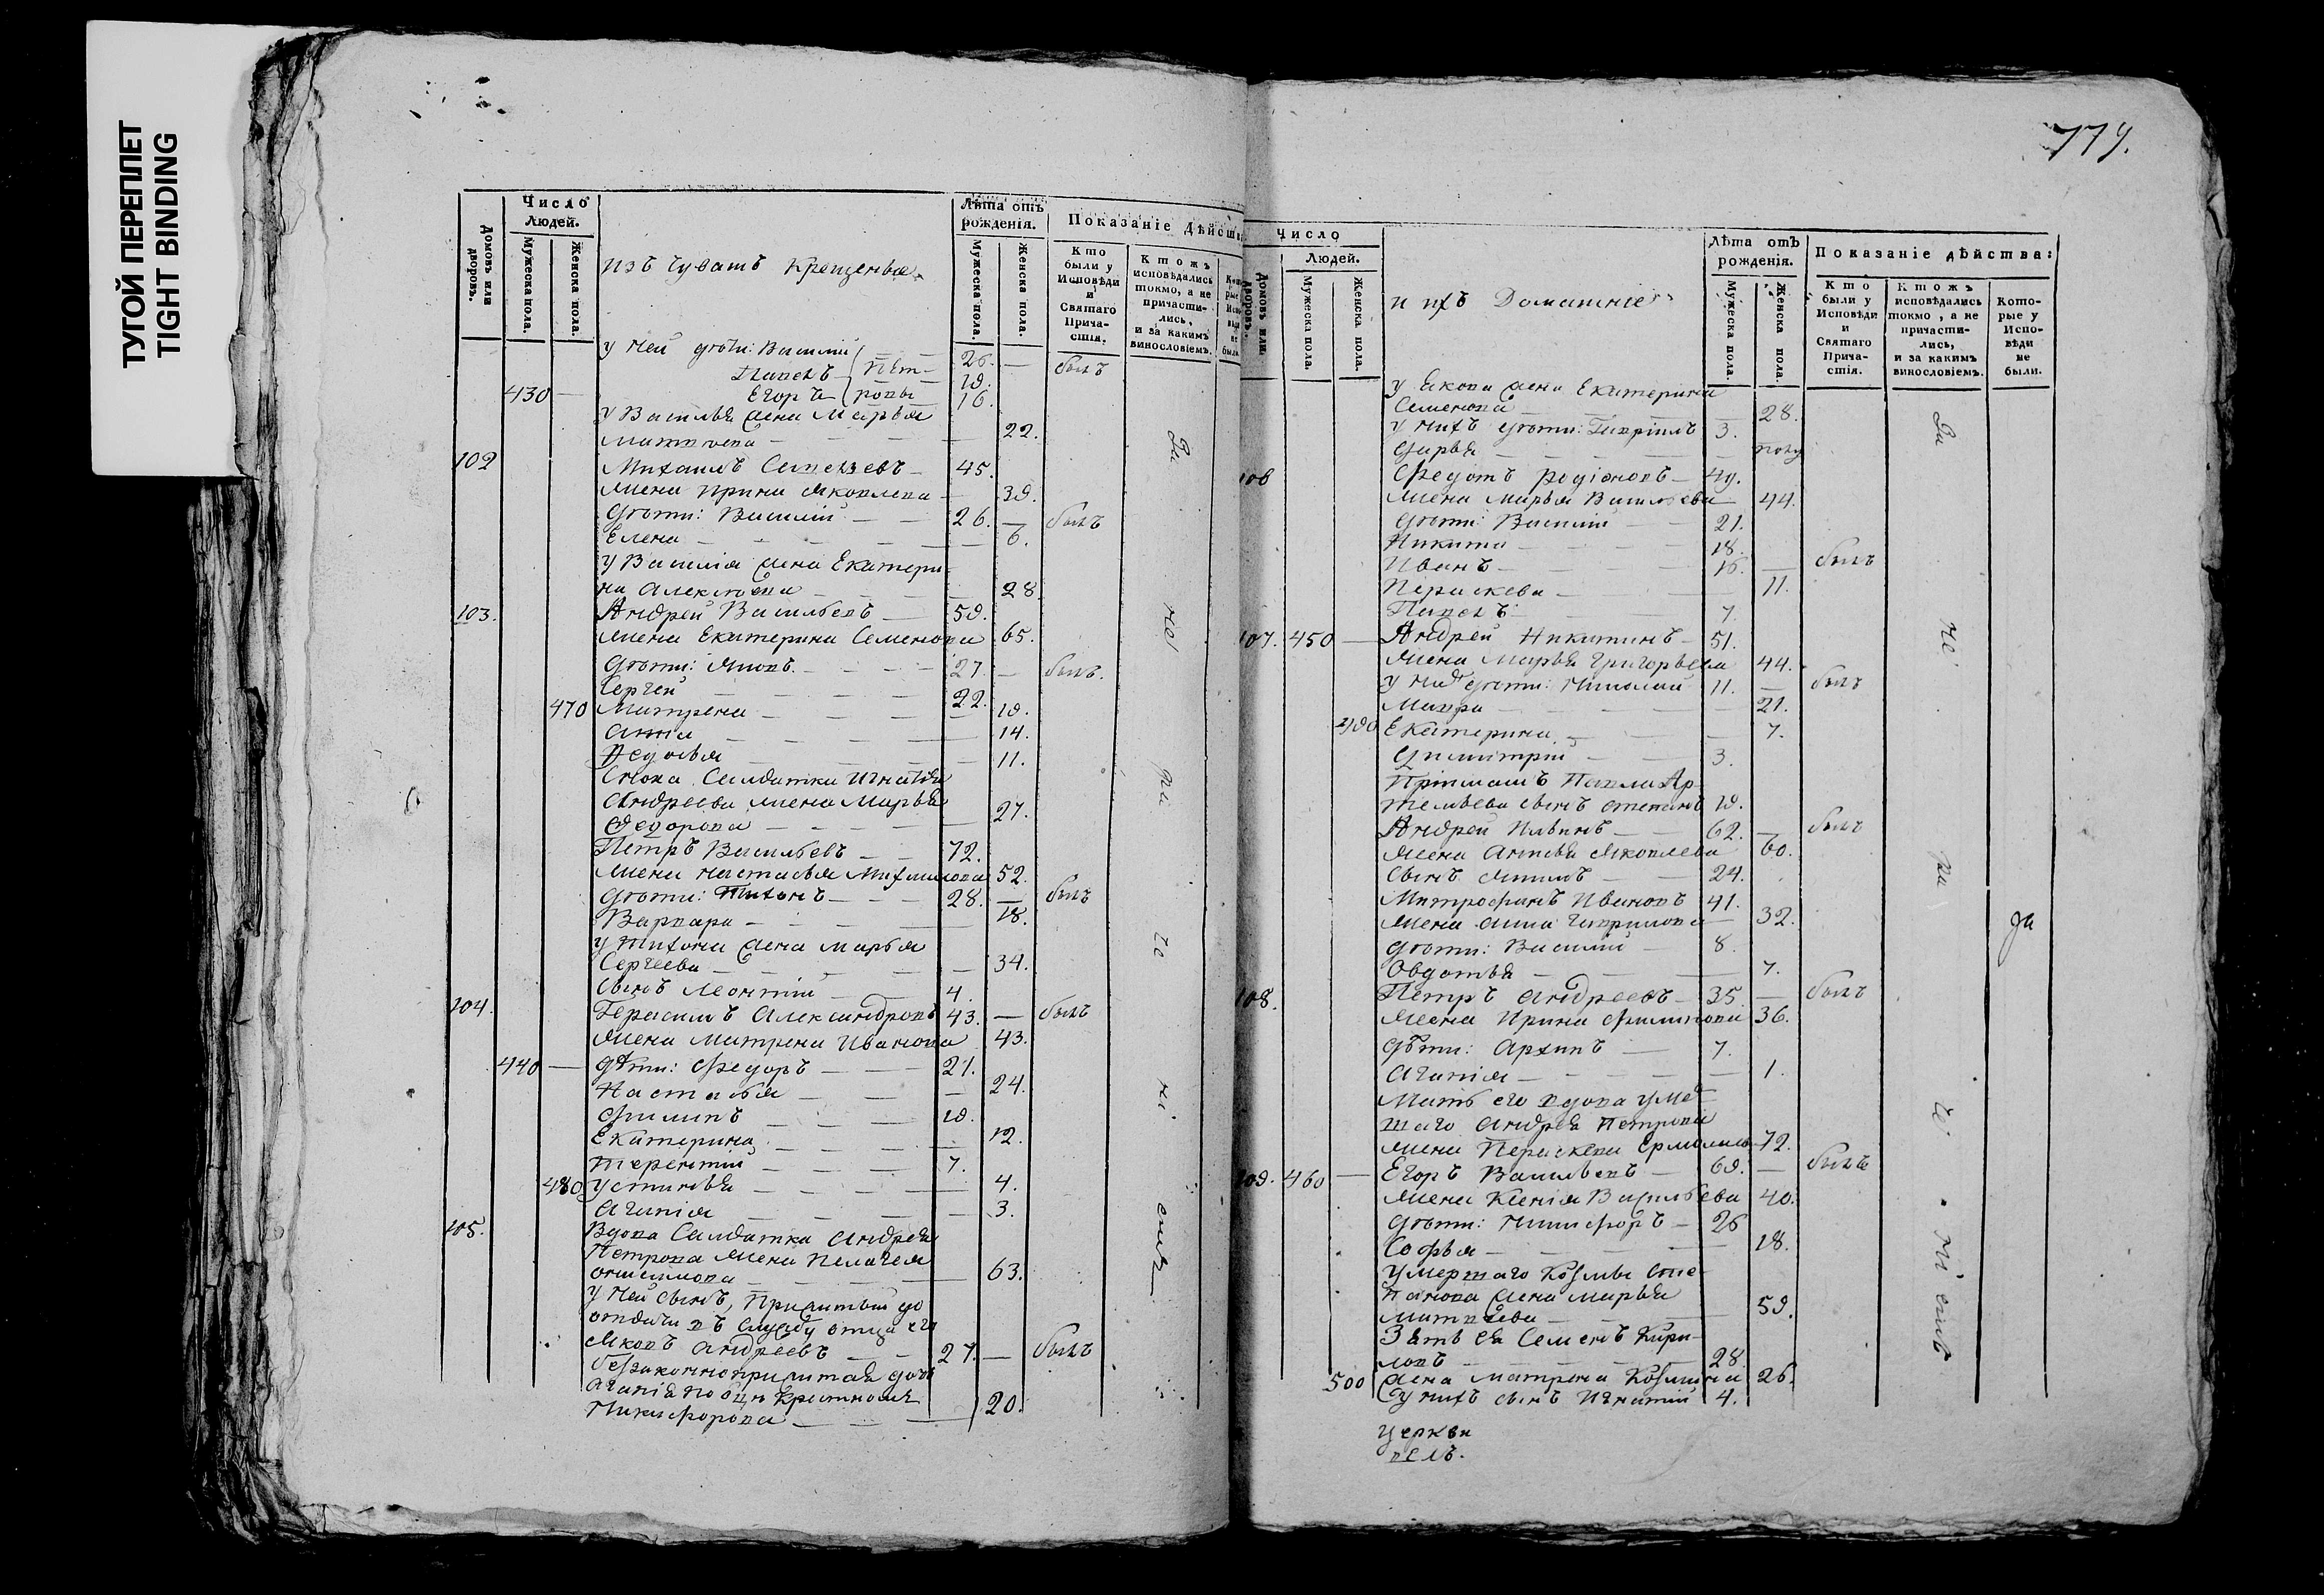 ТУГОЙ ПЕРЕПЛЕТ
TIGHT BINDING
Домовъ или дворовъ.
Число Людей.
Мужеска пола.
Женска пола.
изъ Чувашъ Крещеныя
Лѣта отъ рожденія.
Мужеска пола.
Женска пола.
Показаніе Дѣйств
Кто были у Исповѣди и Святаго Причастія.
Ктожъ исповѣдались токмо, а не причастились, и за какимъ винословіемъ.
у ней дѣти: Василій 26. — былъ
Павелъ Пет- 19.
430 — Егоръ ровы 16.
у Василья жена Марья
Матвѣева — 22.
102 Михаилъ Алексѣевъ — 45.
жена Ирина Яковлева — 39.
дѣти: Василій — 26. — былъ
Елена — 6.
у Василія жена Екатери-
на Алексѣева — 28.
103. Андрей Васильевъ — 59.
жена Екатерина Семенова 65.
дѣти: Яковъ — 27. — былъ.
Сергей — 22.
470 Матрена — 19.
Анна — 14.
Ѳедосья — 11.
Сноха Салдатка Игнатья
Андреева жена Марья
Ѳедорова — 27.
Петръ Васильевъ — 72.
жена Настасья Михайлова 52.
дѣти: Тихонъ — 28. — былъ
Варвара — 18.
у Тихона жена Марья
Сергеева — 34.
сынъ Леонтій 4.
104. Герасимъ Александровъ 43. — былъ
жена Матрена Иванова 43.
440 — дѣти: Федоръ — 21.
Настасья — 24.
Филипъ — 19.
Екатерина — 12.
Терентій — 7.
480 Устинья — 4.
Агапія — 3.
105. Вдова Салдатка Андрея
Петрова жена Пелагея
Онисимова — 63.
у ней сынъ, прижитый до
отдачи въ службу отца его
Яковъ Андреевъ — 27. — былъ
безаконноприжитая дочь
Агапія
Никифорова — 20.
За
не
ра
че
ні
емъ
779.
Домовъ или дворовъ.
Число Людей.
Мужеска пола.
Женска пола.
и ихъ Домашніе
Лѣта отъ рожденія.
Мужеска пола.
Женска пола.
Показаніе дѣйства:
Кто были у Исповѣди и Святаго Причастія.
Ктожъ исповѣдались токмо, а не причастились, и за какимъ винословіемъ.
Которые у Исповѣди не были.
у Якова жена Екатерина
Семенова — 28.
у нихъ дѣти: Гавріилъ 3.
Дарья — полу
106 Федотъ Родіоновъ — 49.
жена Марья Васильева — 44.
дѣти: Василій — 21.
Никита — 18.
Иванъ — 16. — былъ
Параскева — 11.
Павелъ — 7.
107. 450 — Андрей Никитинъ — 51.
жена Марья Григорьева 44.
у нихъ дѣти: Николай 11. — былъ
Мавра — 21.
490 Екатерина — 7.
Димитрій — 3.
Пріимашъ Павла Ар-
темьева сынъ Степанъ 19.
Андрей Ильинъ — 62. — былъ
жена Анисья Яковлева 60.
сынъ — 24.
Митрофанъ Ивановъ 41.
жена Анна Гаврилова — 32.
дѣти: Василій — 8.
Овдотья — 7.
108. Петръ Андреевъ — 35. — былъ
жена Ирина Филипова 36.
дѣти: Архипъ — 7.
Агапія — 1.
Мать его вдова умер-
шаго Андрея Петрова
жена Параскева 72.
109. 460 — Егоръ Васильевъ — 69. — былъ
жена Ксенія Васильева 40.
дѣти: Никифоръ — 26
Софья — 18.
умершаго Козмы Сте-
панова жена Марья
Матвѣева — 59.
Зять ея Семенъ Кири-
ловъ — 28.
500 жена Матрена Козмина 26.
у нихъ сынъ Игнатій 4.
За
не
ра
че
ніемъ
да
церкви